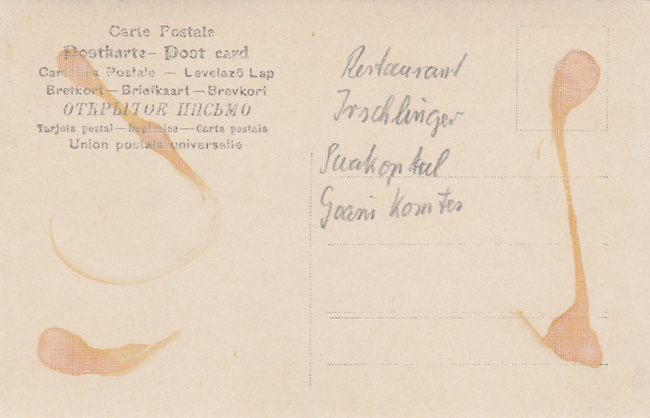 Carte Postale
Postkarte — Post card
Cartolina Postale — Levelező Lap
Brefkort — Briefkaart — Brevkort
ОТКРЫТОЕ ПИСЬМО
Tarjeta postal — Dopisnice — Carta postala
Union postale universelle
Restaurant
Irschlinger